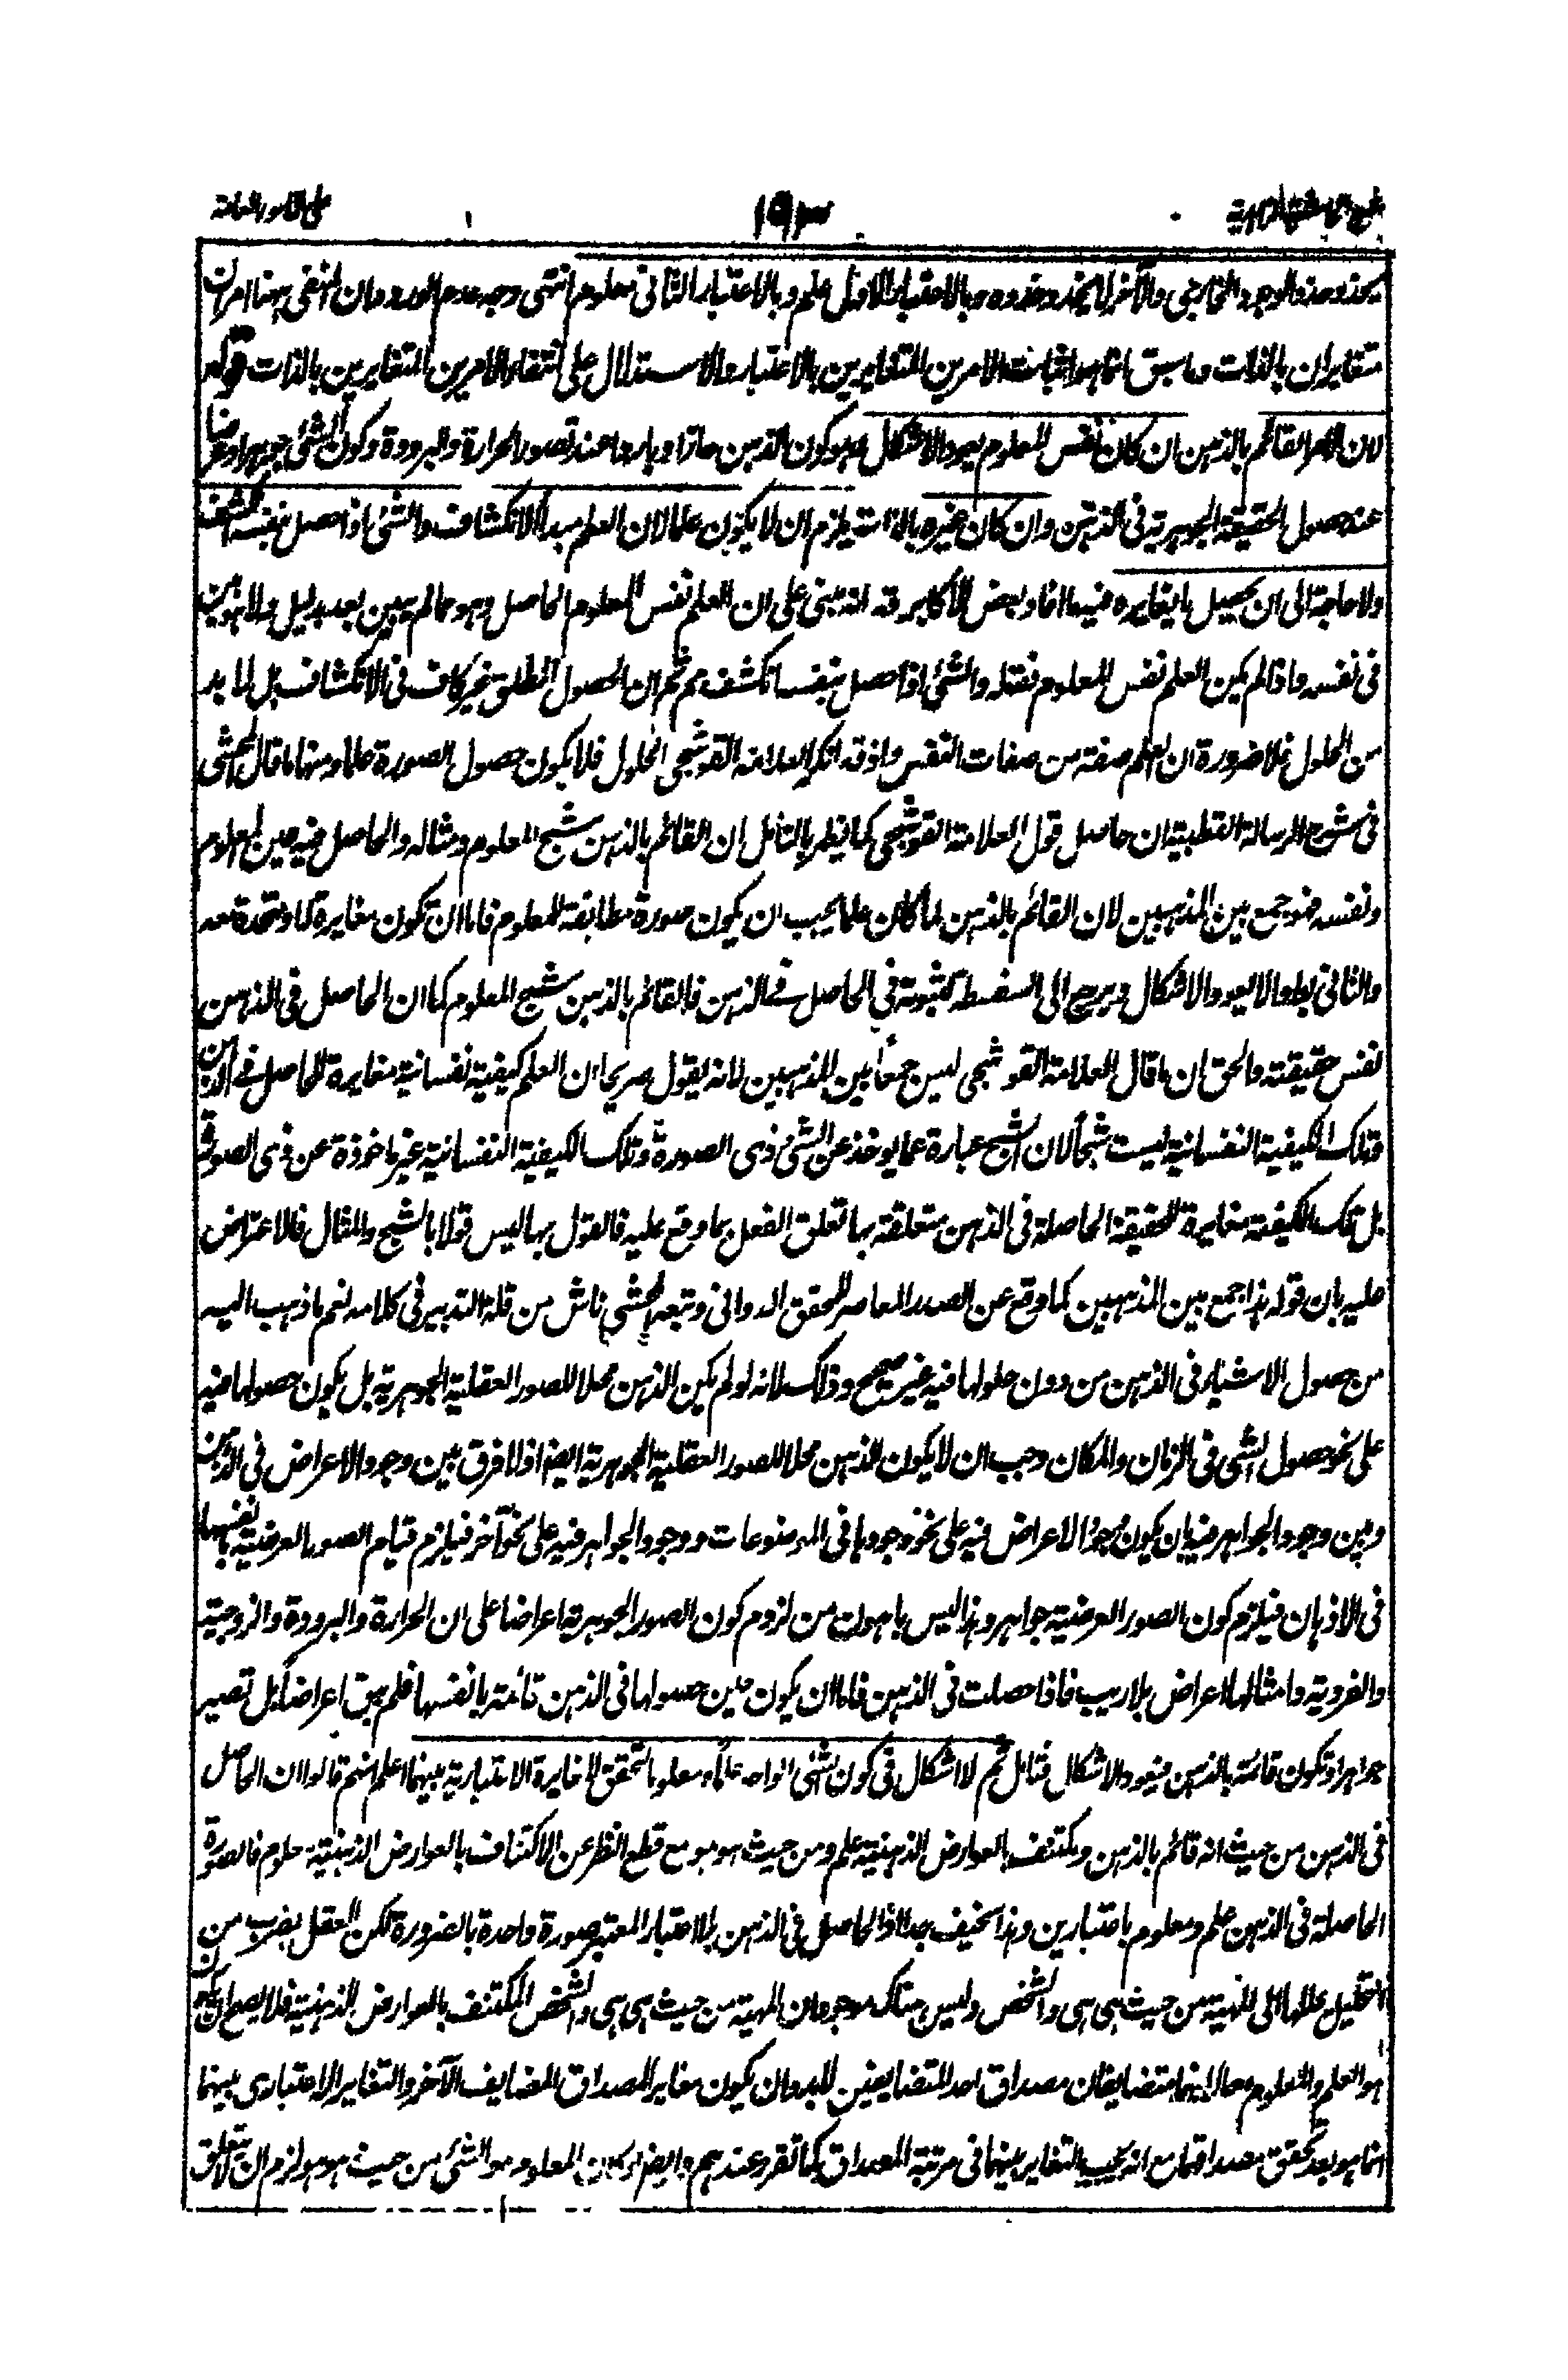 ١٩٣
يحذو حذو الوجود الخارجي والآخر لا يحذو حذوه وبالاعتبار الاول علم وبالاعتبار الثاني معلوم انتهى وجه عدم الورود ان المنفي ههنا امران
متغايران بالذات وما سبق انما هو اثبات الامرين المتغايرين بالاعتبار والاستدلال على انتفاء الامرين المتغايرين بالذات قوله
لان الامر القائم بالذهن ان كان نفس المعلوم يعود الاشكال وهو كون الذهن حارا وباردا عند تصور الحرارة والبرودة وكون الشئ جوهرا وعرضا
عند حصول الحقيقة الجوهرية في الذهن وان كان غيره بالذات يلزم ان لا يكون علما لان العلم مبدأ الانكشاف والشئ اذا حصل بنفسه انكشف
ولا حاجة الى ان يحصل ما يغايره فيه ما افاد بعض الاكابر قد انه مبني على ان العلم نفس المعلوم الحاصل وهو مما لم يبين بعد بدليل ولا هو بين
في نفسه واذا لم يكن العلم نفس المعلوم فقوله والشئ اذا حصل بنفسه انكشف مم ثم ان الحصول المطلق غير كاف في الانكشاف بل لا بد
من الحلول فلا ضرورة ان العلم صفة من صفات النفس واذ قد انكر العلامة القوشجي الحلول فلا يكون حصول الصورة علما ومنها ما قال المحشي
في شرح الرسالة القطبية ان حاصل قول العلامة القوشجي كما يظهر بالتأمل ان القائم بالذهن شبح المعلوم ومثاله والحاصل فيه عين المعلوم
ونفسه فهو جمع بين المذهبين لان القائم بالذهن لما كان علما يجب ان يكون صورة مطابقة للمعلوم فاما ان تكون مغايرة له او متحدة معه
والثاني بط والا ليعود الاشكال ويرجع الى السفسطة كثبوته في الحاصل في الذهن فالقائم بالذهن شبح المعلوم كما ان الحاصل في الذهن
نفس حقيقته والحق ان ما قال العلامة القوشجي ليس جمعا بين المذهبين لانه يقول صريحا ان العلم كيفية نفسانية مغايرة للحاصل في الذهن
وتلك الكيفية النفسانية ليست شبحا لان الشبح عبارة عما يوخذ عن الشئ ذى الصورة وتلك الكيفية النفسانية غير ماخوذة عن ذى الصورة
بل تلك الكيفية مغايرة للحقيقة الحاصلة في الذهن متعلقة بها تعلق الفعل بما وقع عليه فالقول بها ليس قولا بالشبح والمثال فالاعتراض
عليه بان قوله هذا جمع بين المذهبين كما وقع عن الصدر المعاصر للمحقق الدواني وتبعه المحشي ناش من قلة التدبر في كلامه نعم ما ذهب اليه
من حصول الاشياء في الذهن من دون حلولها فيه غير صحيح وذلك لانه لو لم يكن الذهن محلا للصور العقلية الجوهرية بل يكون حصولها فيه
على نحو حصول الشئ في الزمان والمكان وجب ان لا يكون الذهن محلا للصور العقلية الجوهرية ايضا اذ لا فرق بين وجود الاعراض في الذهن
وبين وجود الجواهر فيه بان يكون وجود الاعراض فيه على نحو وجودها في الموضوعات ووجود الجواهر فيه على نحو آخر فيلزم قيام الصور العرضية بانفسها
في الاذهان فيلزم كون الصور العرضية جواهر وهذا ليس باهون من لزوم كون الصور الجوهرية اعراضا على ان الحرارة والبرودة والزوجية
والفردية وامثالها اعراض بلا ريب فاذا حصلت في الذهن فاما ان يكون حين حصولها في الذهن قائمة بانفسها فلم يبق اعراضا بل تصير
جواهر او تكون قائمة بالذهن فيعود الاشكال فتامل ثم لا اشكال في كون الشئ الواحد علما ومعلوما لتحقق المغايرة الاعتبارية بينهما اعلم انهم قالوا ان الحاصل
في الذهن من حيث انه قائم بالذهن ومكتنف بالعوارض الذهنية علم ومن حيث هو هو مع قطع النظر عن الاكتناف بالعوارض الذهنية معلوم فالصورة
الحاصلة في الذهن علم ومعلوم باعتبارين وهذا سخيف جدا اذ الحاصل في الذهن بلا اعتبار المعتبر صورة واحدة بالضرورة لكن العقل بضرب من
التحليل يحللها الى المهية من حيث هى هى والشخص وليس هناك موجودان المهية من حيث هى هى والشخص المكتنف بالعوارض الذهنية فلا يصح ان يكون
هو العلم والمعلوم معا لانهما متضايفان مصداق احد المتضايفين لابد وان يكون مغايرا لمصداق المضايف الآخر والتغاير الاعتبارى بينهما
انما هو بعد تحقق مصداقهما مع انه يجب التغاير بينهما في مرتبة المصداق كما تقرر عندهم وايضا لو كان المعلوم هو الشئ من حيث هو هو لزم ان يتعلق